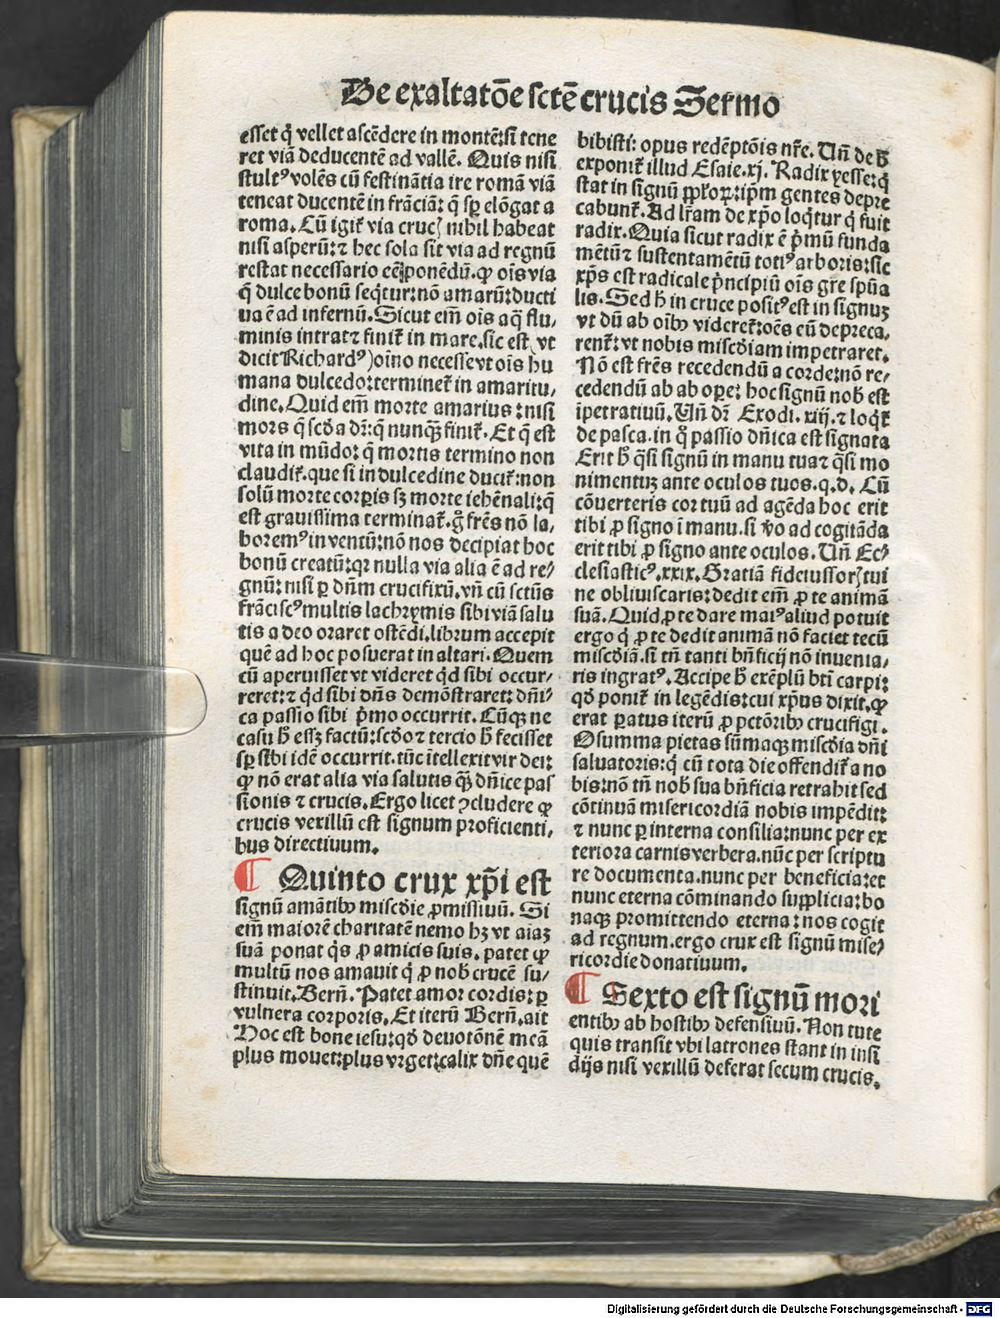 De exaltatōe sctē crucis Sermo
esset q̇ vellet ascēdere in montē:si tene
ret viā deducentē ad vallē. Quis nisi
stultꝰ volēs cū festinātia ire romā viā
teneat ducentē in frāciā: q̄ sp̄ elōgat a
roma. Cū igit᷑ via crucꝭ nihil habeat
nisi asperū: ⁊ hec sola sit via ad regnū
restat necessario eē ꝓponēdū. ꝙ oīs via
q̄ dulce bonū seq̇tur: nō amarū: ducti
ua ē ad infernū. Sicut em̄ oīs aq̄ flu⸗
minis intrat ⁊ finit᷑ in mare. sic est (vt
dicit Richardꝰ) oīno necesse vt oīs hu
mana dulcedo: terminet᷑ in amaritu⸗
dine. Quid em̄ morte amarius: nisi
mors q̄ scd̄a dr̄: q̄ nunꝙ̄ finit᷑. Et q̄ est
vita in mūdo: q̄ mortis termino non
claudit᷑. que si in dulcedine ducit᷑: non
solū morte corꝑis sꝫ morte iehēnali: q̄
est grauissima terminat᷑. gͦ frēs nō la⸗
boremꝰ in ventū: nō nos decipiat hoc
bonū creatū: qꝛ nulla via alia ē ad re⸗
gnū: nisi ꝑ dn̄m crucifixū. vn̄ cū sctūs
frāciscꝰ multis lachrymis sibi viā salu
tis a deo oraret ostēdi. librum accepit
quē ad hoc posuerat in altari. Quem
cū aperuisset vt videret qd̄ sibi occur⸗
reret: ⁊ qd̄ sibi dn̄s demōstraret: dn̄i⸗
ca passio sibi ṗmo occurrit. Cūqꝫ ne
casu h̄ essꝫ factū: scd̄o ⁊ tercio h̄ fecisset
sp̄ sibi idē occurrit. tūc ītellexit vir dei:
ꝙ nō erat alia via salutis ꝙ̄ dn̄ice pas
sionis ⁊ crucis. Ergo licet ꝯcludere ꝙ
crucis vexillū est signum proficienti⸗
bus directiuum.
¶ Quinto crux xp̄i est
signū amātibꝫ miscd̄ie ꝓmissiuū. Si
em̄ maiorē charitatē nemo hꝫ vt aīaꝫ
suā ponat q̇s ꝓ amicis suis. patet ꝙ
multū nos amauit q̇ ꝓ nob̄ crucē su⸗
stinuit. Bern̄. Patet amor cordis: ꝑ
vulnera corporis. Et iterū Bern̄. ait
Hoc est bone iesu: qd̄ deuotōnē meā
plus mouet: plus vrget: calix dn̄e quē
bibisti: opus redēptōis nr̄e. Vn̄ de h̄
exponit᷑ illud Esaie. xj. Radix yesse: q̇
stat in signū pp̄loꝝ: ip̄m gentes depre
cabunt᷑. Ad lr̄am de xp̄o loq̇tur q̇ fuit
radix. Quia sicut radix ē ṗmū funda
mētū ⁊ sustentamētū totiꝰ arboris: sic
xp̄s est radicale ṗncipiū oīs gr̄e spūa
lis. Sed h̄ in cruce positꝰ est in signuꝫ
vt dū ab oībꝫ videret᷑: oēs eū depreca⸗
rent᷑: vt nobis miscd̄iam impetraret.
Nō est frēs recedendū a corde: nō re⸗
cedendū ab ab oꝑe: hoc signū nob̄ est
īpetratiuū. Vn̄ dr̄ Exodi. xiij. ⁊ loq̇t᷑
de pasca. in q̊ passio dn̄ica est signata
Erit h̄ q̄si signū in manu tua ⁊ q̄si mo
nimentuꝫ ante oculos tuos. q. d. Cū
cōuerteris cor tuū ad agēda hoc erit
tibi ꝓ signo ī manu. si v̊o ad cogitāda
erit tibi ꝓ signo ante oculos. Vn̄ Ec⸗
clesiasticꝰ. xxix. Gratiā fideiussorꝭ tui
ne obliuiscaris: dedit em̄ ꝓ te animā
suā. Quid ꝓ te dare maiꝰ aliud potuit
ergo q̇ ꝓ te dedit animā nō faciet tecū
miscd̄iā. si tn̄ tanti bn̄ficij nō inuenia⸗
ris ingratꝰ. Accipe h̄ exēplū bt̄i carpi:
qd̊ ponit᷑ in legēdis: cui xp̄us dixit. ꝙ
erat ꝑatus iterū ꝓ pctōribꝫ crucifigi.
O summa pietas sūmaqꝫ miscd̄ia dn̄i
saluatoris: q̇ cū tota die offendit᷑ a no
bis: nō tn̄ nob̄ sua bn̄ficia retrahit sed
cōtinuā misericordiā nobis impēdit:
⁊ nunc ꝑ interna consilia: nunc per ex
teriora carnis verbera. nūc per scriptu
re documenta. nunc per beneficia: et
nunc eterna cōminando supplicia: bo
naqꝫ promittendo eterna: nos cogit
ad regnum. ergo crux est signū mise⸗
ricordie donatiuum.
¶ Sexto est signū mori
entibꝫ ab hostibꝫ defensiuū. Non tute
quis transit vbi latrones stant in insi
dijs nisi vexillū deferat secum crucis.
Digitalisierung gefördert durch die Deutsche Forschungsgemeinschaft - DFG